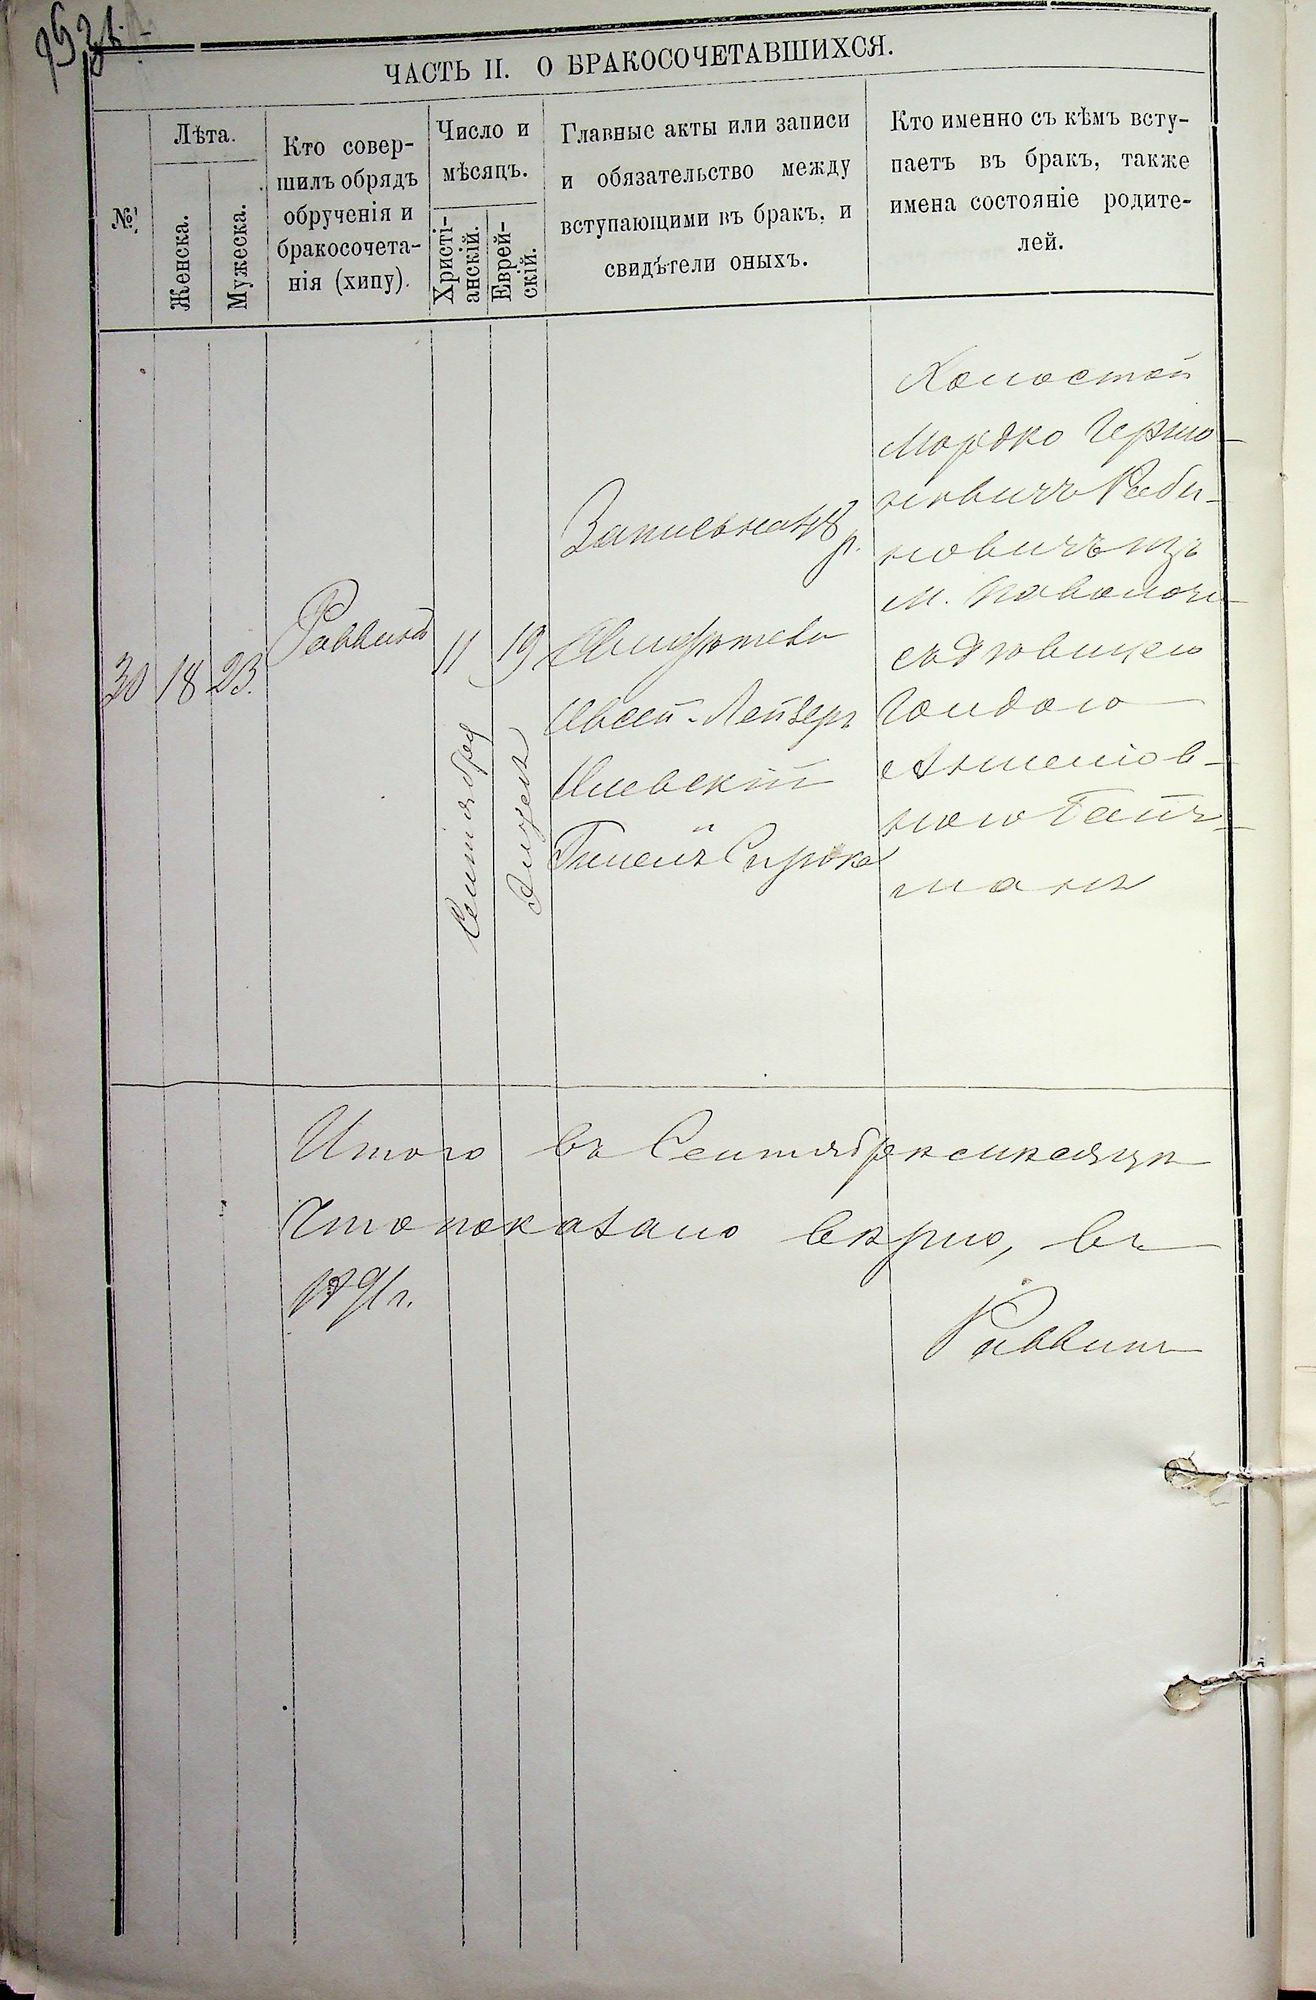 ЧАСТЬ II. О БРАКОСОЧЕТАВШИХСЯ.
№
Лѣта.
Женска.
Мужеска.
Кто совер-
шилъ обрядъ
обрученія и
бракосочета-
нія (хипу).
Число и
мѣсяцъ.
Христі-
анскій.
Еврей-
скій.
Главные акты или записи
и обязательство между
вступающими въ бракъ, и
свидѣтели оныхъ.
Кто именно съ кѣмъ всту-
паетъ въ бракъ, также
имена состояніе родите-
лей.
30
18
23.
Раввинъ
11
Сентября
19
Запись на 48
р.
Свидѣтели
Овсей-Лейзеръ
Килевскій
Холостой
Мордко Гершо-
новичъ Раби-
новичъ изъ
м. Паволочи
съ дѣвицею
Гольдою
Аншелов-
ною Гойх-
манъ
Итого въ Сентябрѣ мѣсяцѣ
Что показано вѣрно, въ
1891 г.
Раввинъ